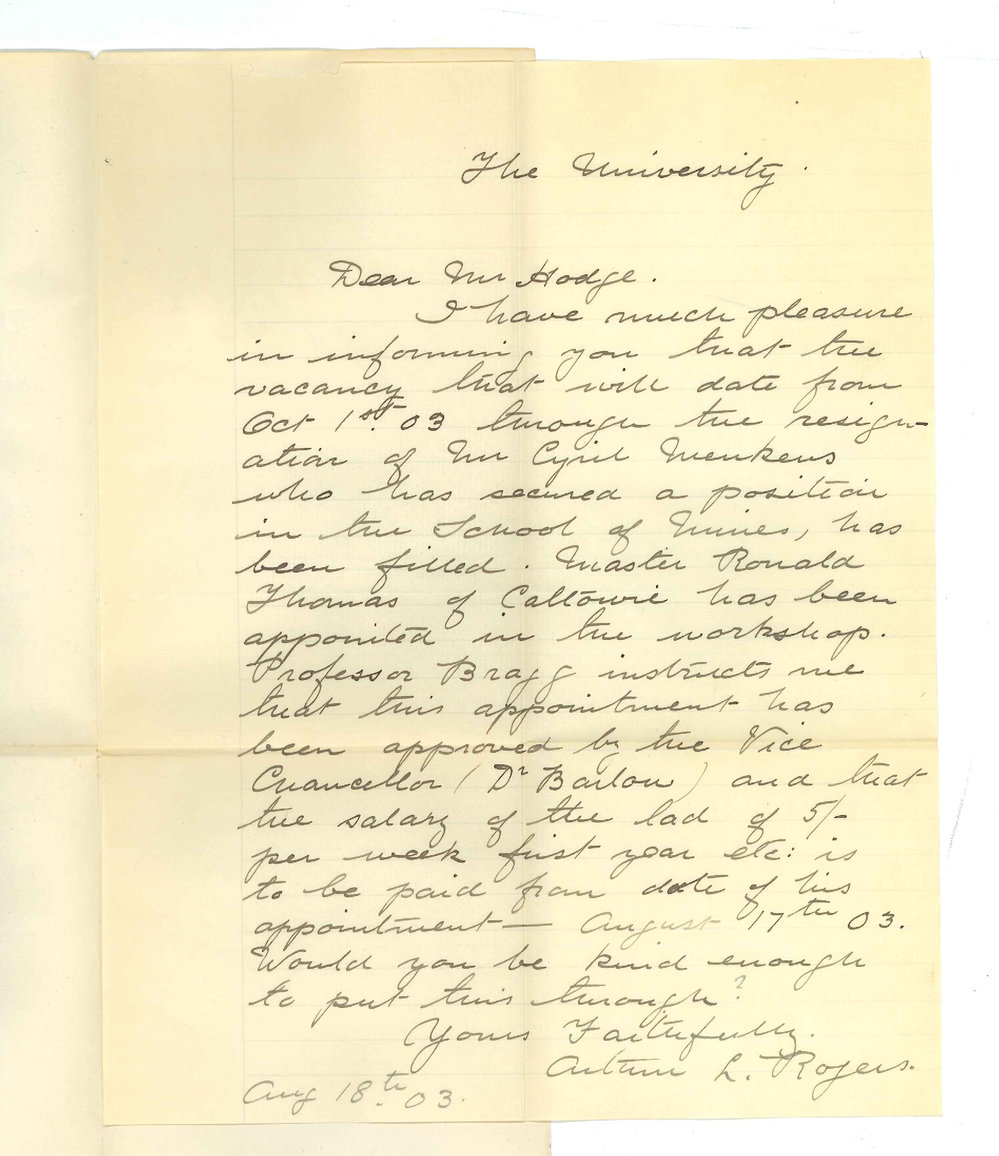 The University.
Dear Mr Hodge.
I have much pleasure
in informing you that the
vacancy that will date from
Oct 1st. 03 through the resign-
ation of Mr Cyril Menkens
who has secured a position
in the School of Mines, has
been filled. Master Ronald
Thomas of Caltowie has been
appointed in the workshop.
Professor Bragg instructs me
that this appointment has
been approved by the Vice
Chancellor (Dr Barlow) and that
the salary of the lad of 5/-
per week first year etc: is
to be paid from date of his
appointment — August 17th 03.
Would you be kind enough
to put this through?
Yours Faithfully.
Arthur L. Rogers.
Aug 18th. 03.